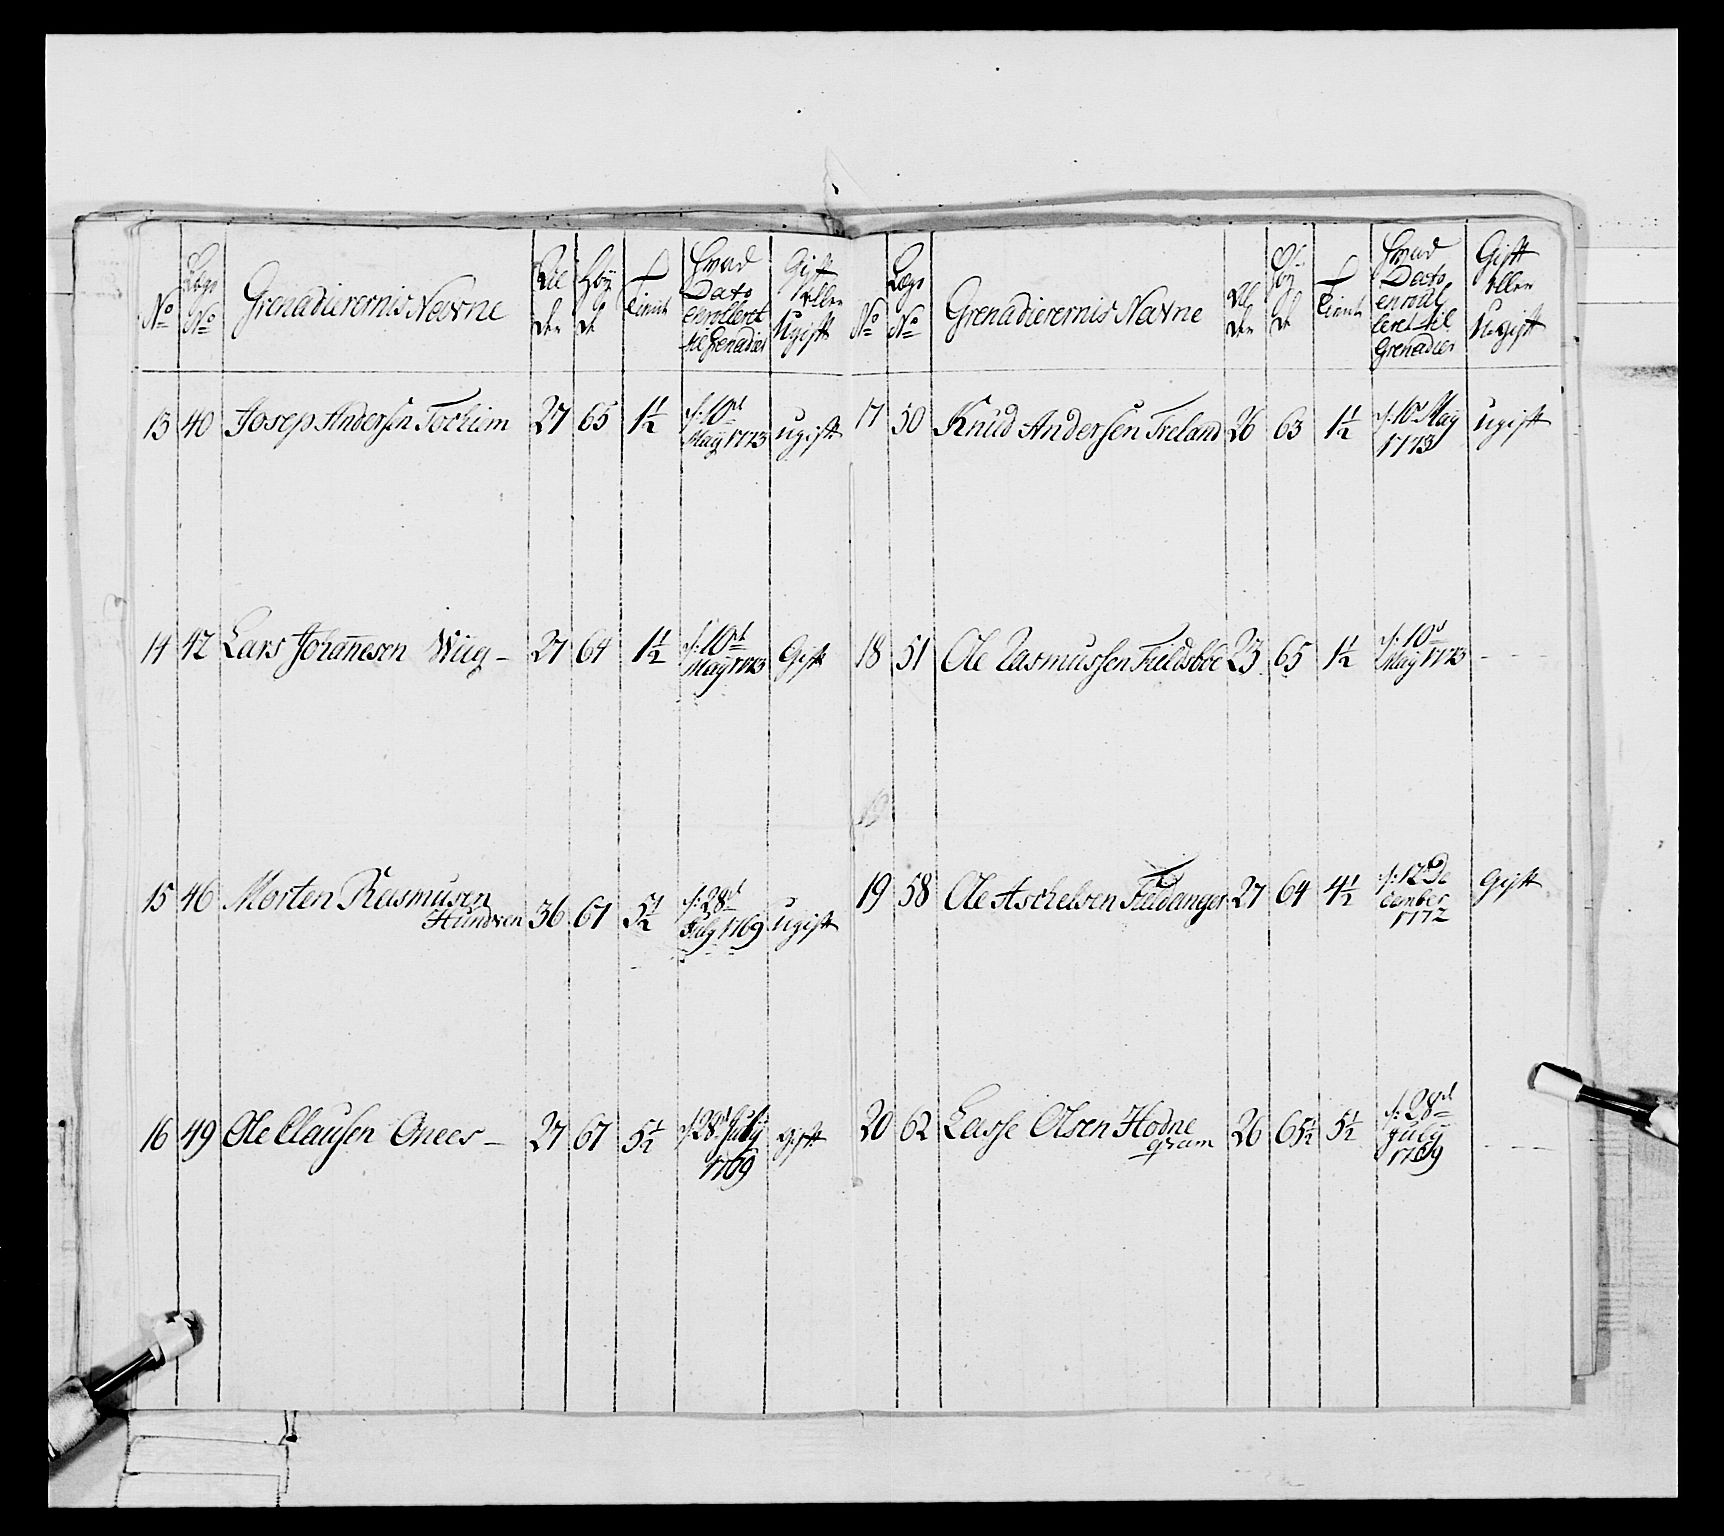 No
Lægs No
Grenadierernis Navne
Al der
Høy de
Tient
Hvad Dato enrolleret til Grenadier
Gift eller Ugift
13 40 Josep Andersen 27 65 1½ d: 10de May 1773 ugift
14 42 Lars Johannesen Wiig – 27 64 1½ d: 10de May 1773 Gift
15 46 Morten Rasmusen Hundven 36 67 5½ d: 28de July 1769 ugift
16 49 Ole Clausen Onees – 27 67 5½ d: 28de July 1769 gift
No
Lægs No
Grenadierernis Navne
Al der
Høy de
Tient
Hvad Dato enrolleret til Grenadier
Gift eller Ugift
17 50 Knud Andersen Freland 26 63 1½ d: 10de May 1773 ugift
18 51 Ole Rasmussen Fieldsboe 23 65 1½ d: 10de May 1773 - - -
19 58 Ole Aschelsen Fieldanger 27 64 4½ d: 12te December 1772 Gift
20 62 Lasse Olsen Hodne qvam 26 65½ 5½ d: 28de July 1769 - - -